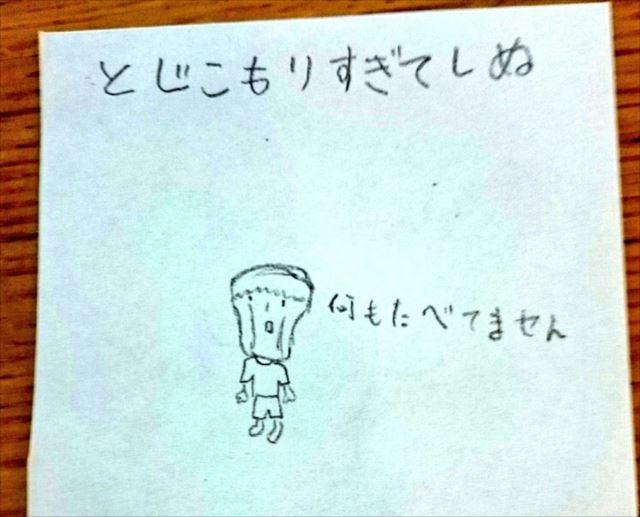 とじこもりすぎてしぬ
何もたべてません